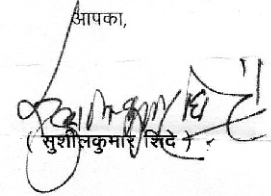 आपका,
( सुशीलकुमार शिंदे )